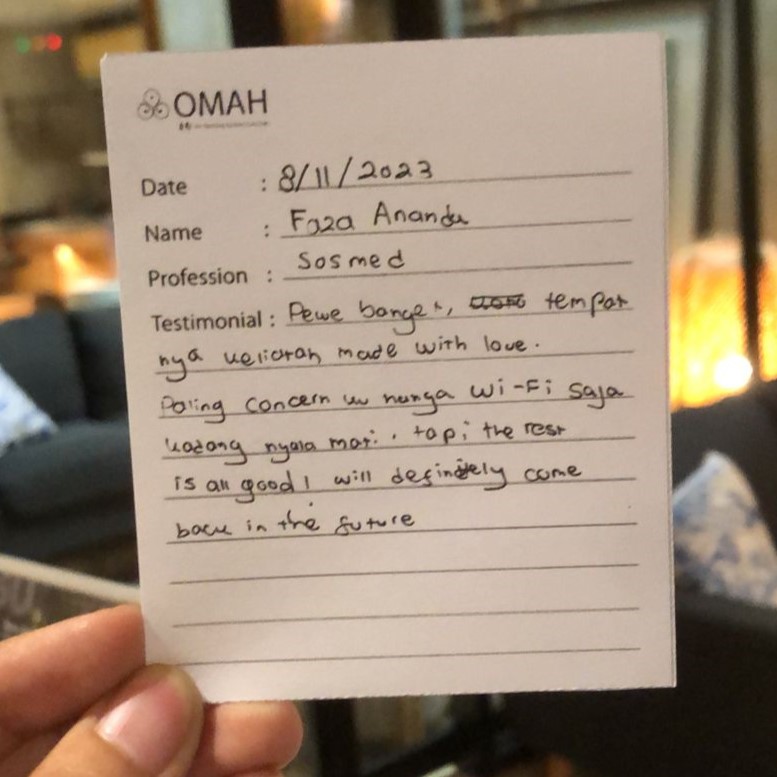 OMAH
Date : 8/11/2023
Name : Faza Ananda
Profession : Sosmed
Testimonial : Pewe banget, tempat
nya keliatan made with love.
Paling concern ku hanya Wi-Fi saja
kadang nyala mati. tapi the rest
is all good! will definitely come
back in the future